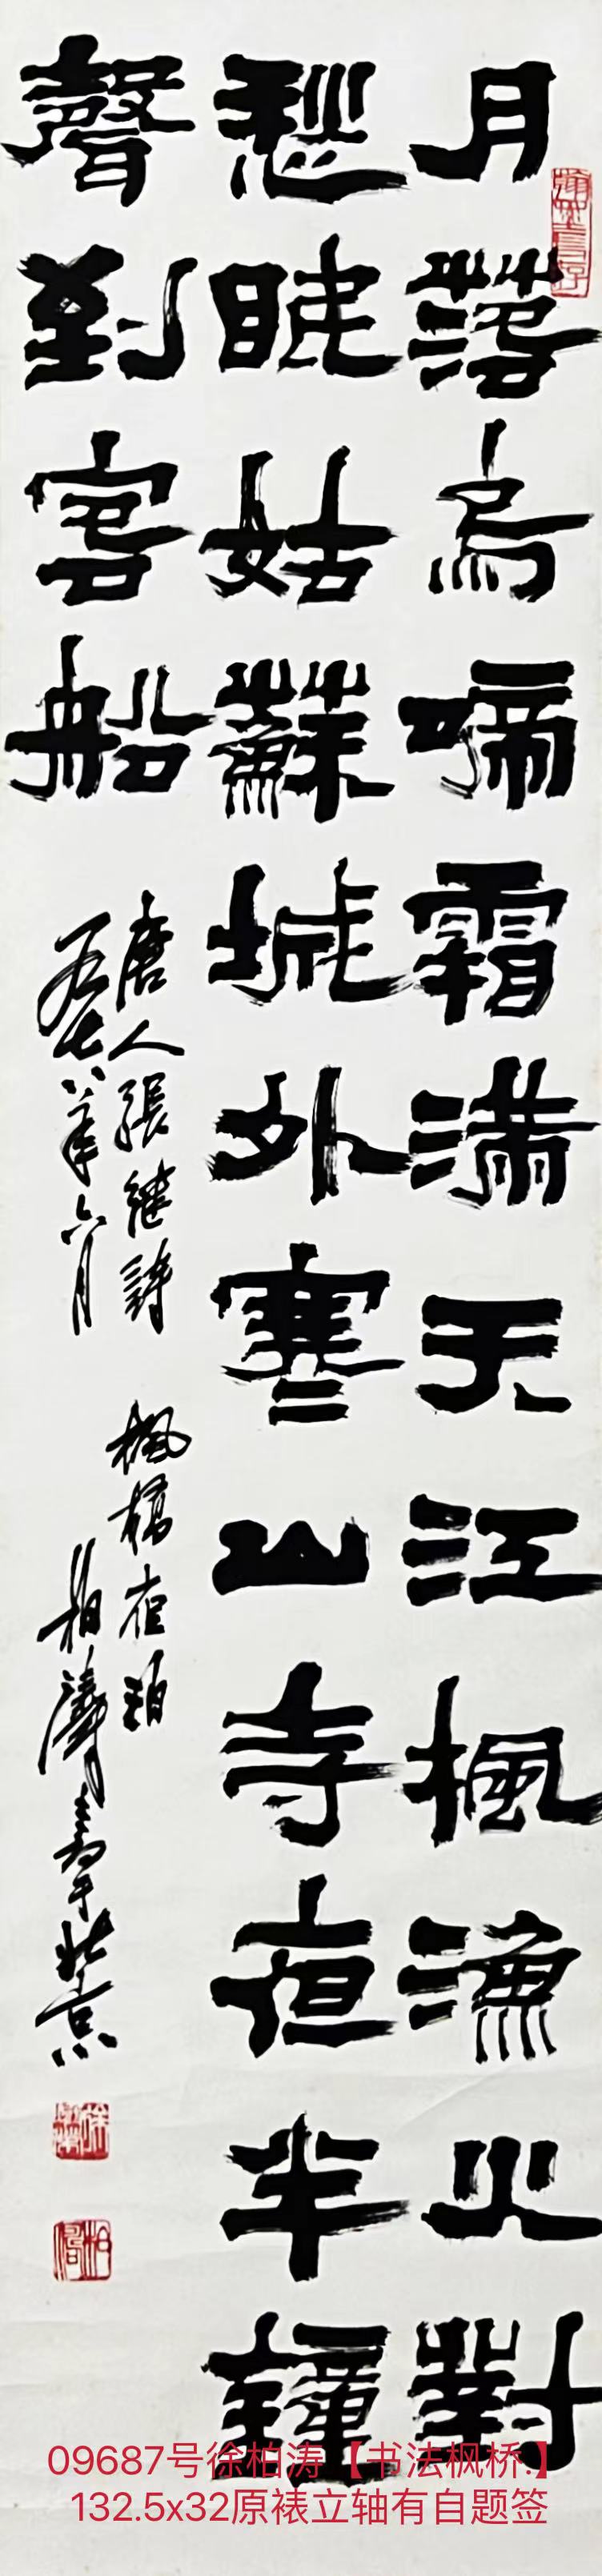 月落烏啼霜满天江楓漁火對
愁眠姑蘇城外寒山寺夜半鐘
聲到客船
唐人張継詩 楓橋夜泊
一九七八年六月 柏濤書于北京
09687号徐柏涛【书法枫桥.】
132.5x32原裱立轴有自题签